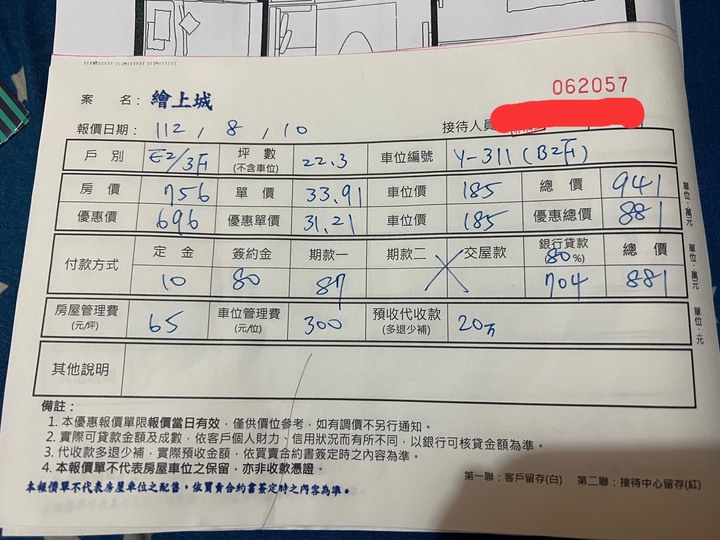 062057
案 名：繪上城
報價日期：112 / 8 / 10 接待人員
戶別 E2/3F 坪數(不含車位) 22.3 車位編號 Y-311 (B2F)
房價 756 單價 33.91 車位價 185 總價 941
優惠價 696 優惠單價 31.21 車位價 185 優惠總價 881
單位：萬元
付款方式 定金 簽約金 期款一 期款二 交屋款 銀行貸款 80%) 總價
10 80 87 704 881
單位：萬元
房屋管理費(元/坪) 65 車位管理費(元/位) 300 預收代收款(多退少補) 20万
單位：元
其他說明
備註：
1. 本優惠報價單限報價當日有效，僅供價位參考，如有調價不另行通知。
2. 實際可貸款金額及成數，依客戶個人財力、信用狀況而有所不同，以銀行可核貸金額為準。
3. 代收款多退少補，實際預收金額，依買賣合約書簽定時之內容為準。
4. 本報價單不代表房屋車位之保留，亦非收款憑證。
第一聯：客戶留存(白) 第二聯：接待中心留存(紅)
本報價單不代表房屋車位之配售，依買賣合約書簽定時之內容為準。